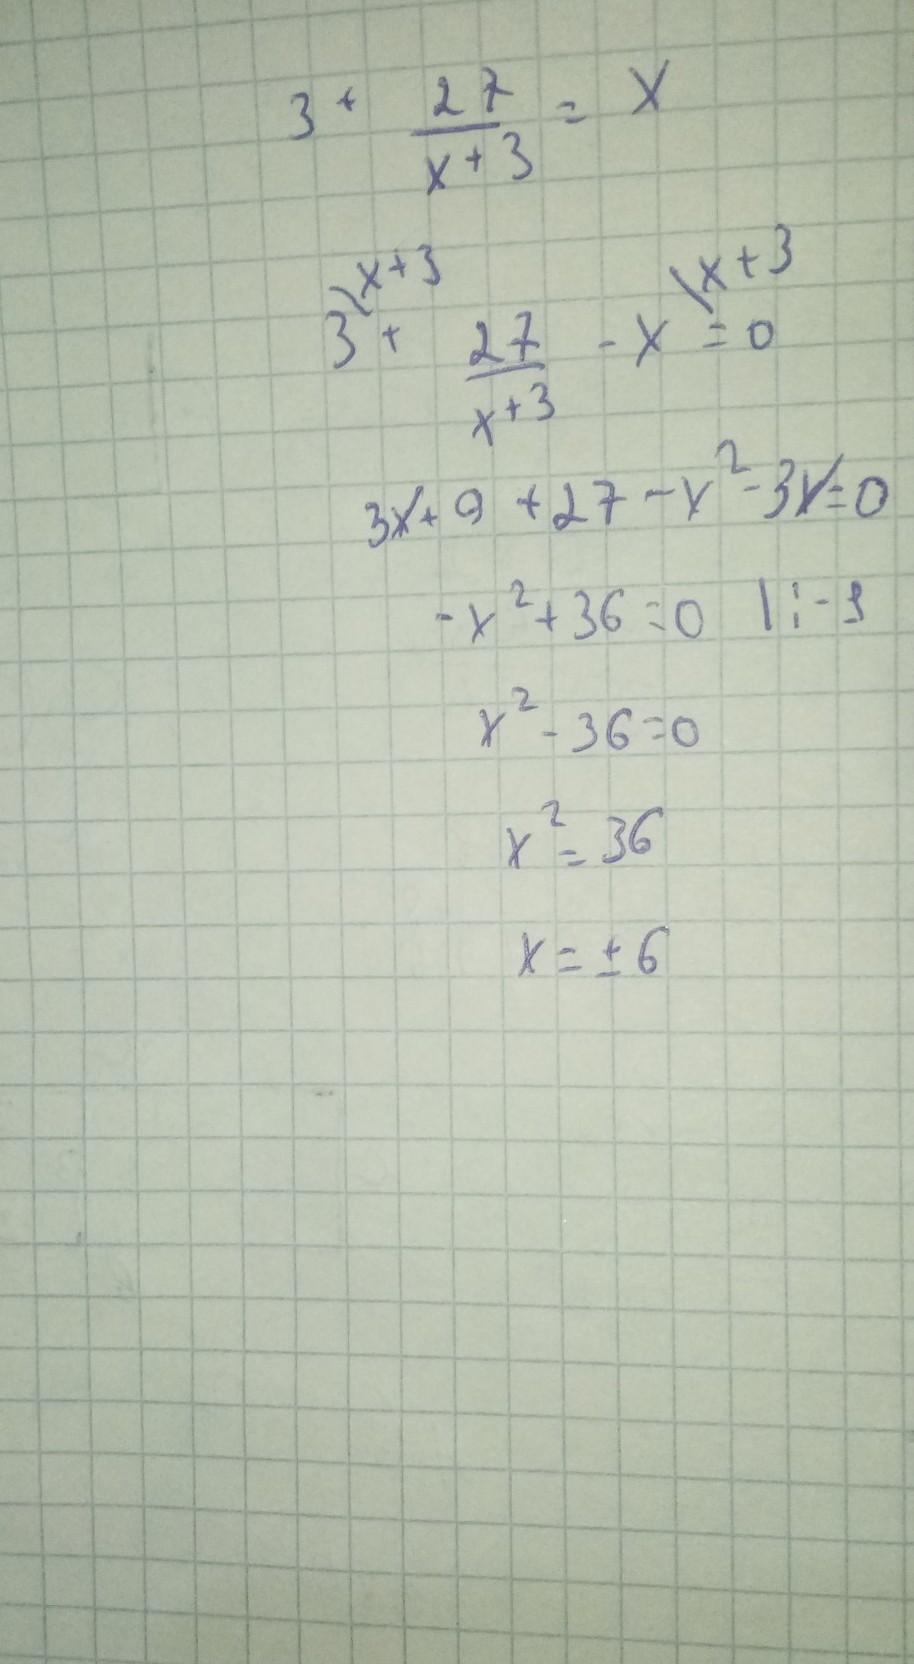 3 + 27/(x+3) = x
3\x+3 + 27/(x+3) - x\x+3 = 0
3x + 9 + 27 - x² - 3x = 0
-x² + 36 = 0 | : -1
x² - 36 = 0
x² = 36
x = ± 6